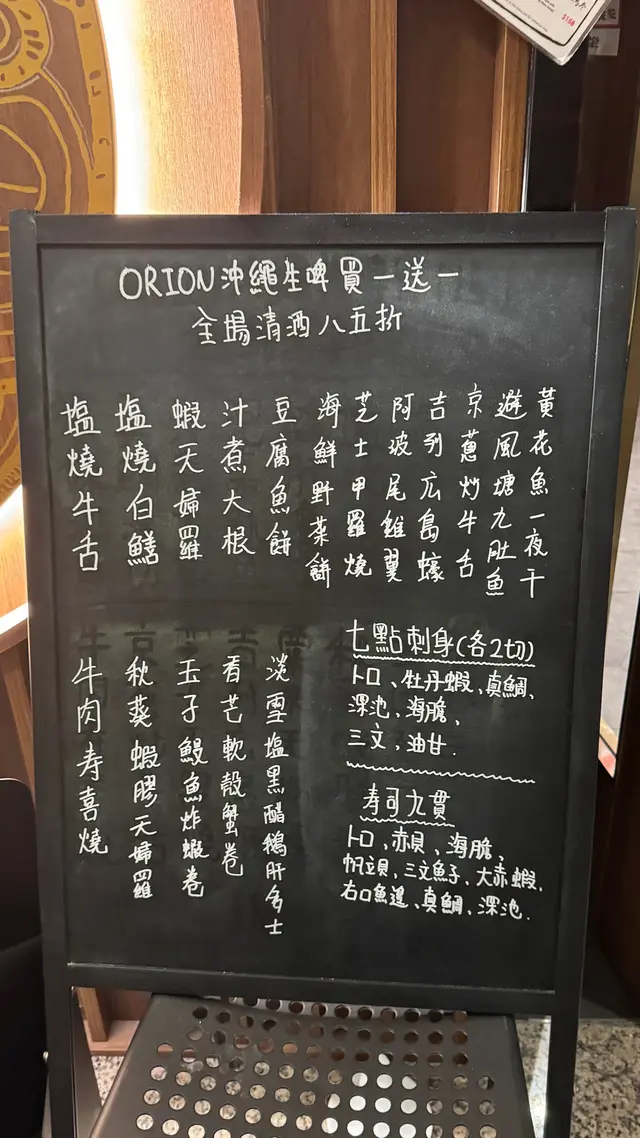 ORION沖繩生啤買一送一
全場清酒八五折
黃花魚一夜干
避風塘九肚魚
京蔥炒牛舌
吉列広島蠔
阿波尾雞翼
芝士甲羅燒
海鮮野菜餅
豆腐魚餅
汁煮大根
蝦天婦羅
塩燒白鱔
塩燒牛舌
七點刺身(各2切)
トロ、牡丹蝦、真鯛、
深池、海膽、
三文,油甘.
寿司九貫
トロ、赤貝、海膽、
帆立貝、三文魚子、大赤蝦、
右口魚邊、真鯛、深池.
淡雪塩黑醋鵝肝多士
香芒軟殼蟹卷
玉子鰻魚炸蝦卷
秋葵蝦膠天婦羅
牛肉寿喜燒
$168